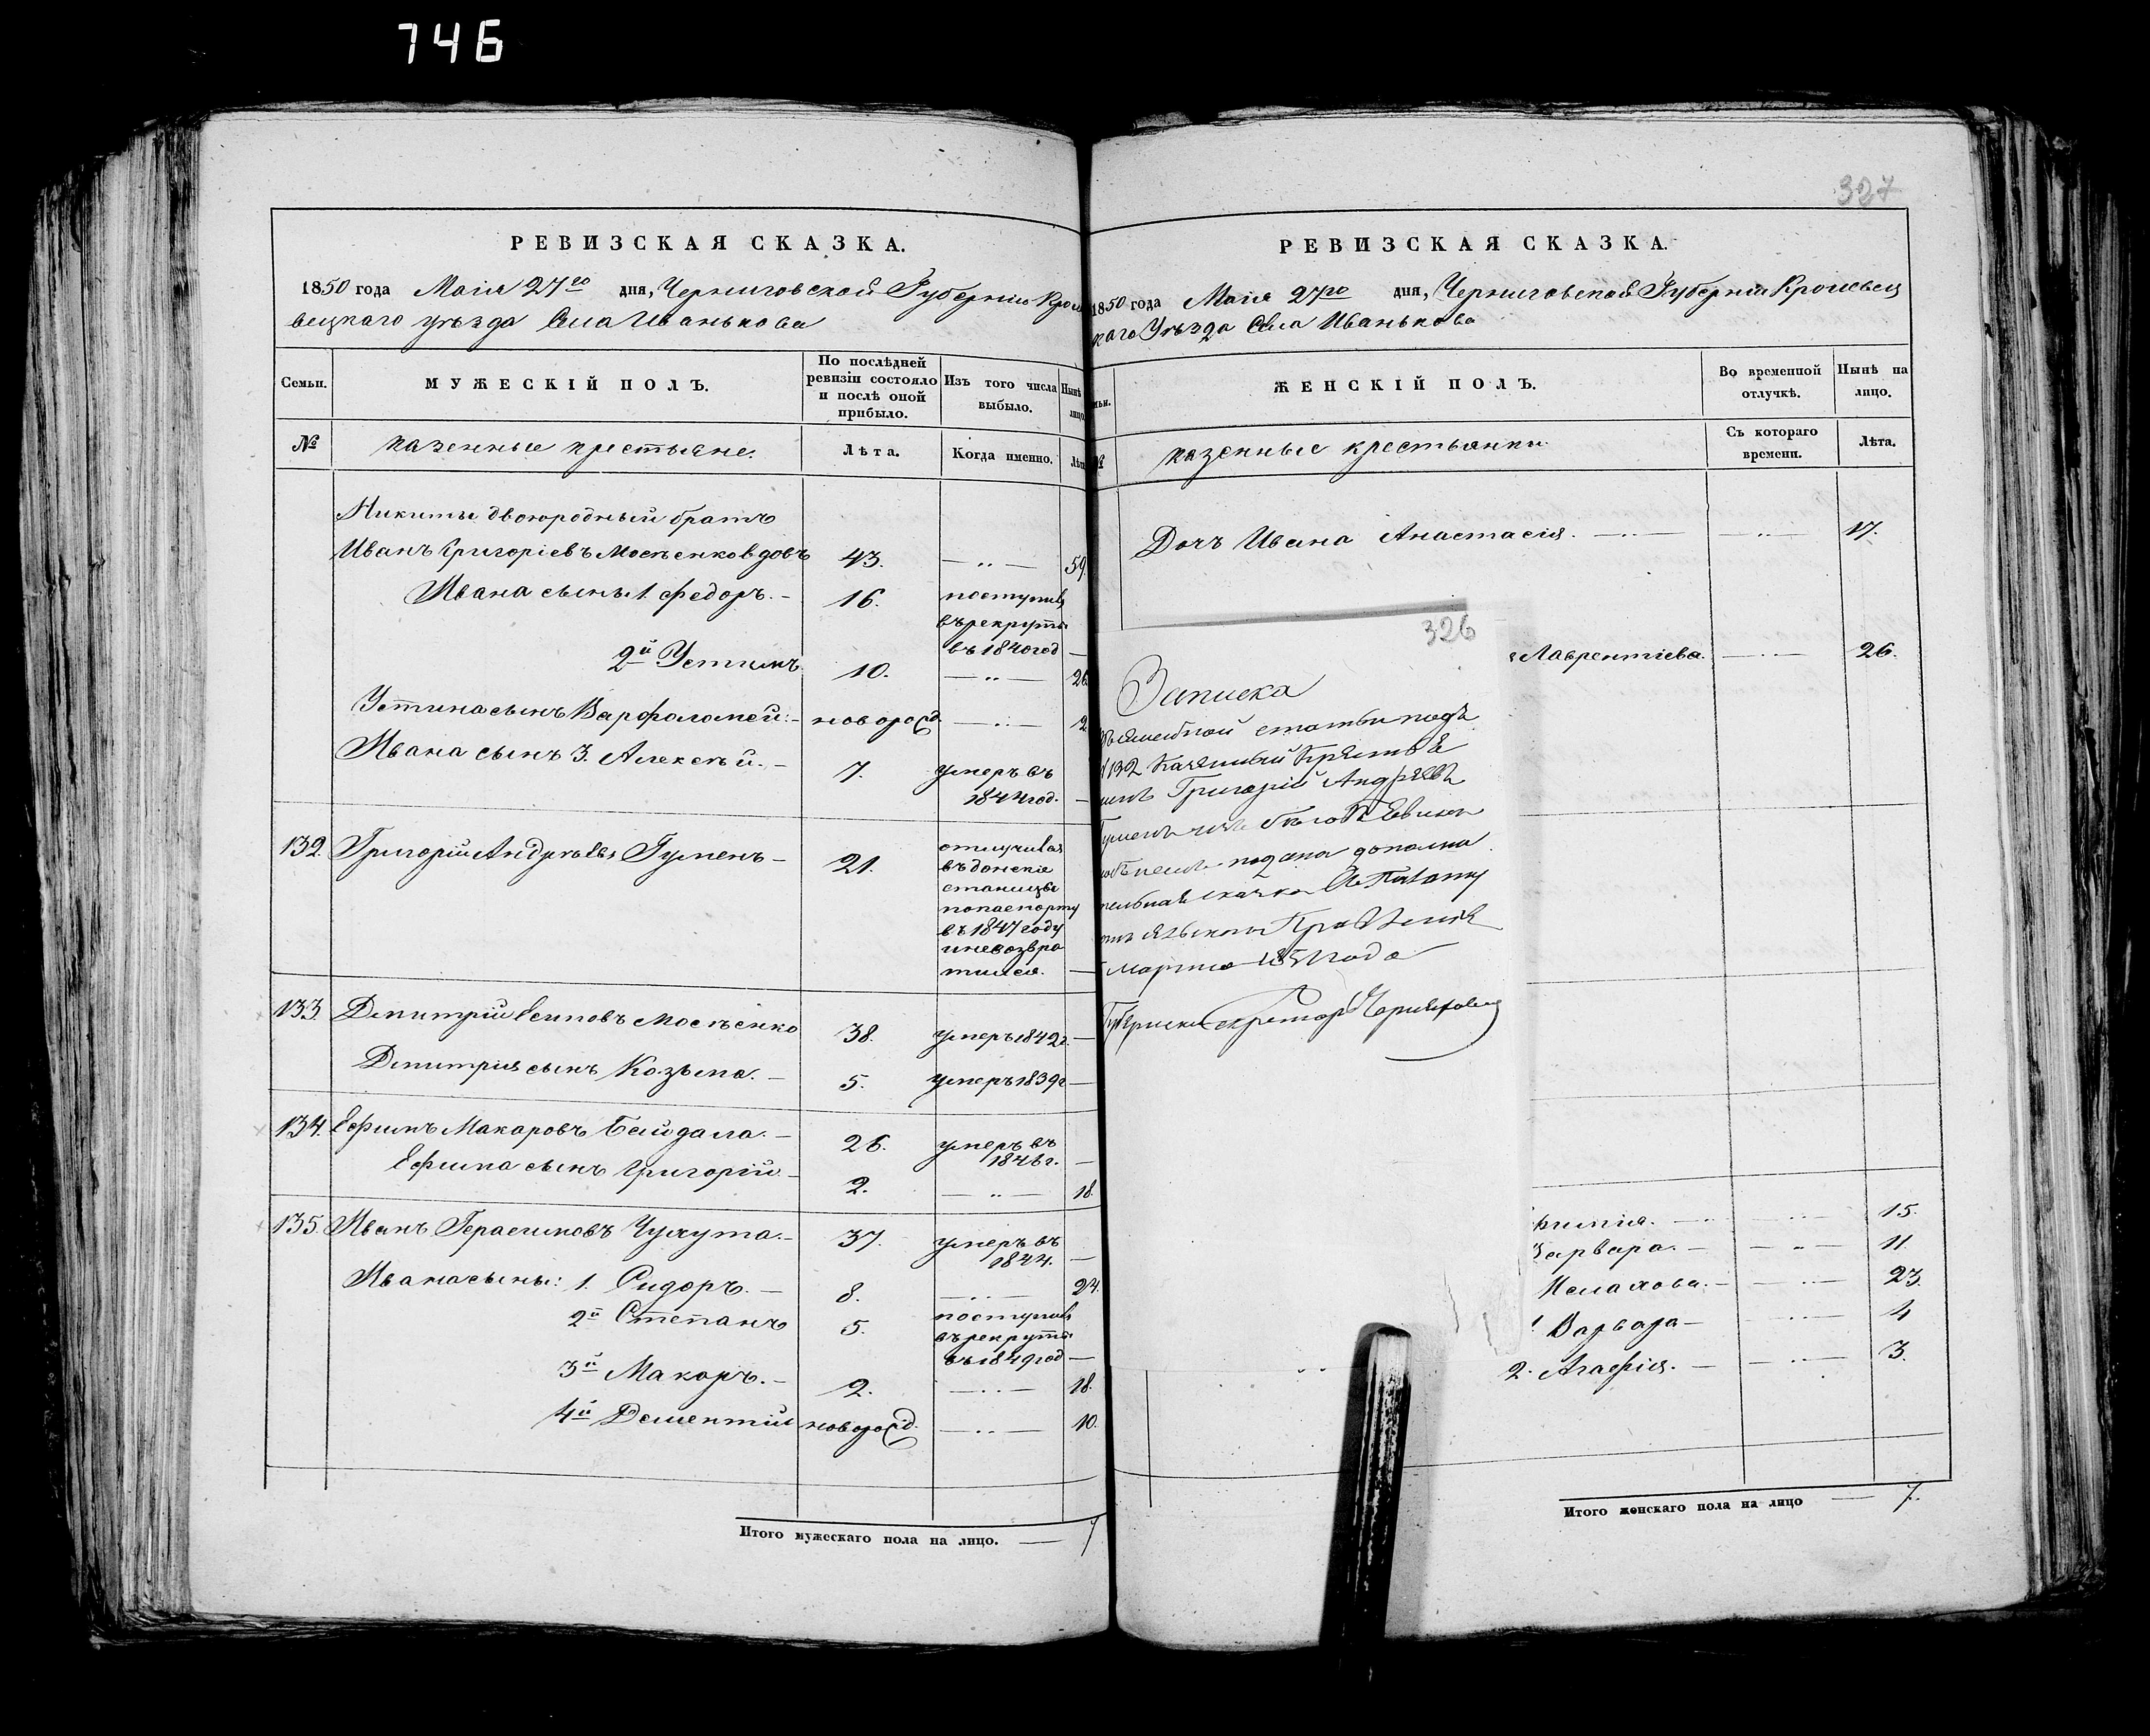 746
РЕВИЗСКАЯ СКАЗКА.
1850 года Маія 27го дня, Черниговской Губерніи Кроле
вецкаго уѣзда Села Иванькова
Семьи.
МУЖЕСКІЙ ПОЛЪ.
По послѣдней ревизіи состояло и послѣ оной прибыло.
Изъ того числа выбыло.
Нынѣ лицо
№
казенные крестьяне.
Лѣта.
Когда именно.
Лѣт
Никиты двоюродный братъ
Иванъ Григоріевъ Мосѣенко вдовъ 43. — 59.
Ивана сыны 1. Федоръ. — 16. поступивъ
въ рекруты
въ 1840 год —
2й Устимъ 10. — 26.
Устина сынъ Варфоломей: — новорожд — 2
Ивана сынъ 3. Алексѣй. — 7. умеръ въ
1844 год. —
132. Григорій Андрѣевъ Гуменъ — 21. отлучился
въ донскіе
станицы
по паспорту
въ 1847 году
и невозвра
тился. —
133. Дмитрій Есиповъ Мосѣенко 38. умеръ 1842 г. —
Дмитрія сынъ Козьма. — 5. умеръ 1839 г —
134. Ефимъ Макаровъ Байдала. — 26. умеръ въ
1846 г. —
Ефима сынъ Григорій — 2. — 18.
135. Иванъ Герасимовъ Чумута. — 37. умеръ въ
1844. —
Ивана сыны: 1. Сидоръ. — 8. — 24.
2й Степанъ 5. поступивъ
въ рекруты
въ 1849 год —
3й Макаръ. — 2. — 18.
4й Дементій новорожд. — 10.
Итого мужескаго пола на лицо. — 7
327
РЕВИЗСКАЯ СКАЗКА.
1850 года Маія 27го дня, Черниговской Губерніи Кролевец
каго Уѣзда Села Иванькова
мьи.
ЖЕНСКІЙ ПОЛЪ.
Во временной отлучкѣ.
Нынѣ на лицо.
казенные крестьянки
Съ котораго времени.
Лѣта.
Дочь Ивана Анастасія. — 17.
326
Лаврентіева. — 26.
Записка
статьи подъ
132
Григорій Андреевъ
подана дополни
тельная сказка
Марта 1851 года
Секретарь
15.
арвара. — 11.
Малахова. — 23.
Варвара — 4
2. Агафія. — 3.
Итого женскаго пола на лицо — 7.